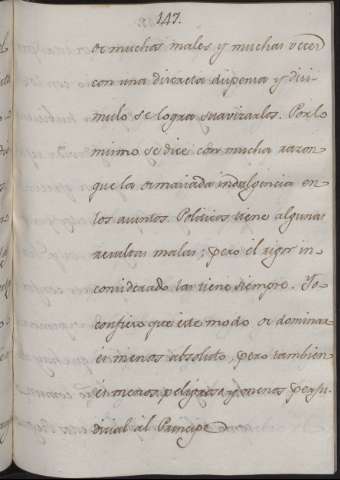 147.
de muchos males, y muchas veces
con una discreta dispensa y disi-
mulo se logra suavizarlos. Por lo
mismo se dice con mucha razon
que la demasiada indulgencia en
los asuntos Politicos tiene algunas
resultas malas; pero el rigor in-
considerado las tiene siempre. Yo
confieso que este modo de dominar
es menos absoluto, pero tambien
es menos peligroso y menos perju-
dicial al Principe